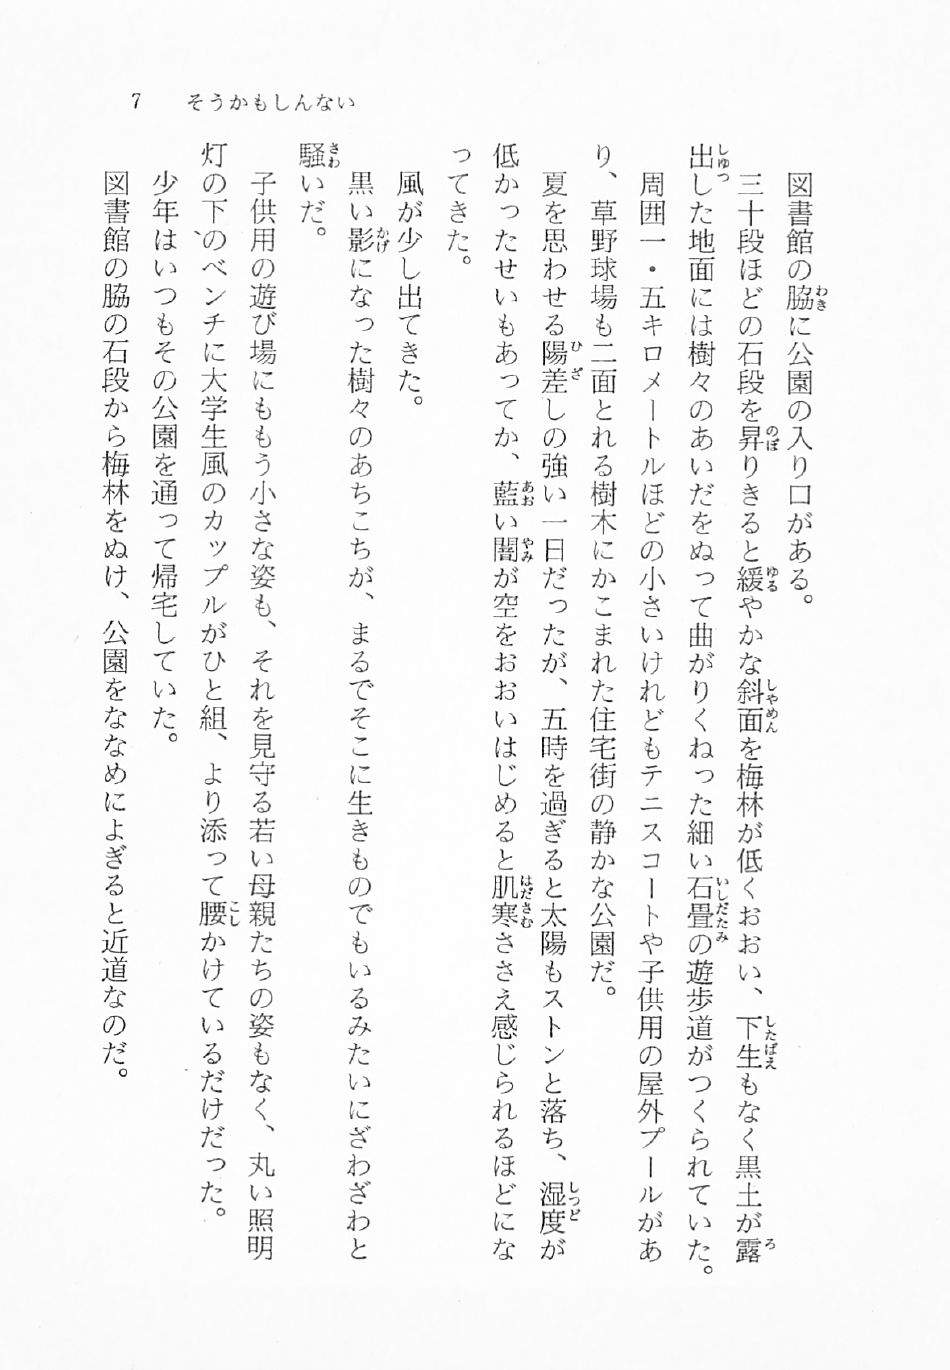 7 そうかもしんない
図書館の脇に公園の入り口がある。
三十段ほどの石段を昇りきると緩やかな斜面を梅林が低くおおい、下生もなく黒土が露
出した地面には樹々のあいだをぬって曲がりくねった細い石畳の遊歩道がつくられていた。
周囲一・五キロメートルほどの小さいけれどもテニスコートや子供用の屋外プールがあ
り、草野球場も二面とれる樹木にかこまれた住宅街の静かな公園だ。
夏を思わせる陽差しの強い一日だったが、五時を過ぎると太陽もストンと落ち、湿度が
低かったせいもあってか、藍い闇が空をおおいはじめると肌寒ささえ感じられるほどにな
ってきた。
風が少し出てきた。
黒い影になった樹々のあちこちが、まるでそこに生きものでもいるみたいにざわざわと
騒いだ。
子供用の遊び場にももう小さな姿も、それを見守る若い母親たちの姿もなく、丸い照明
灯の下のベンチに大学生風のカップルがひと組、より添って腰かけているだけだった。
少年はいつもその公園を通って帰宅していた。
図書館の脇の石段から梅林をぬけ、公園をななめによぎると近道なのだ。